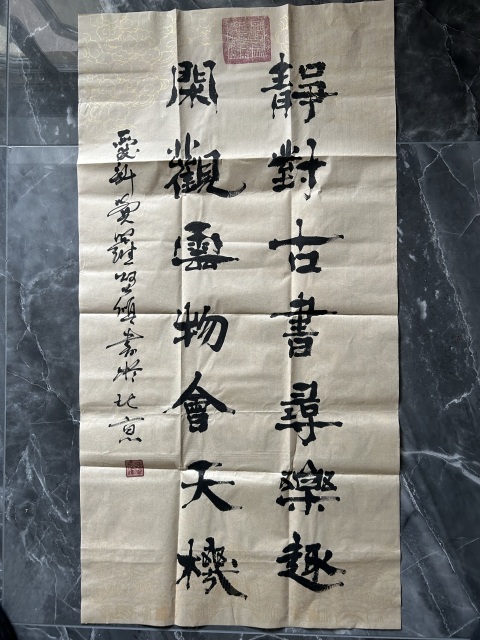 靜對古書尋樂趣
閑觀雲物會天機
愛新覺羅堅煩書於北京